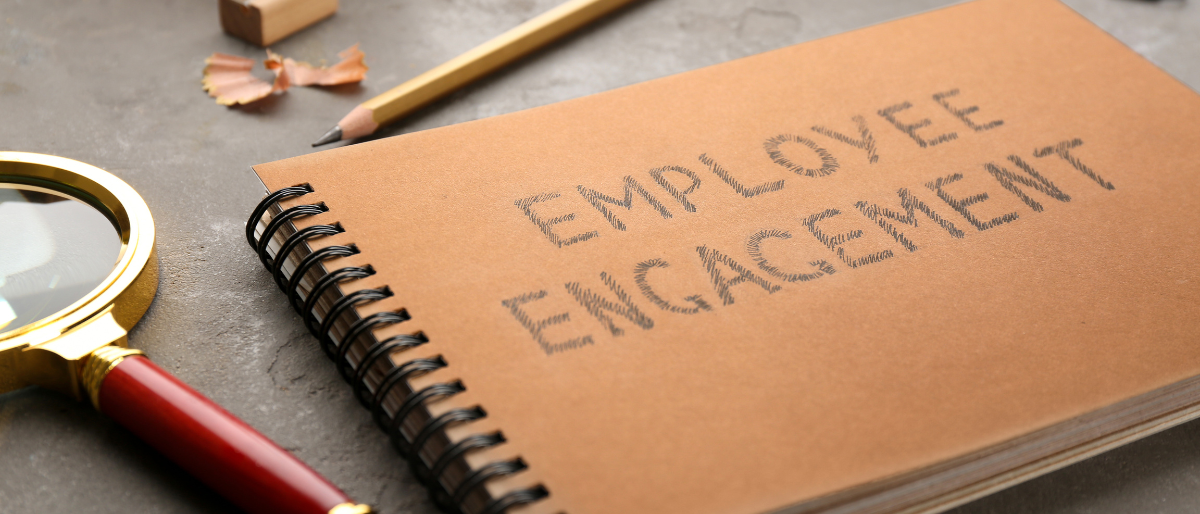 EMPLOYEE
ENGAGEMENT